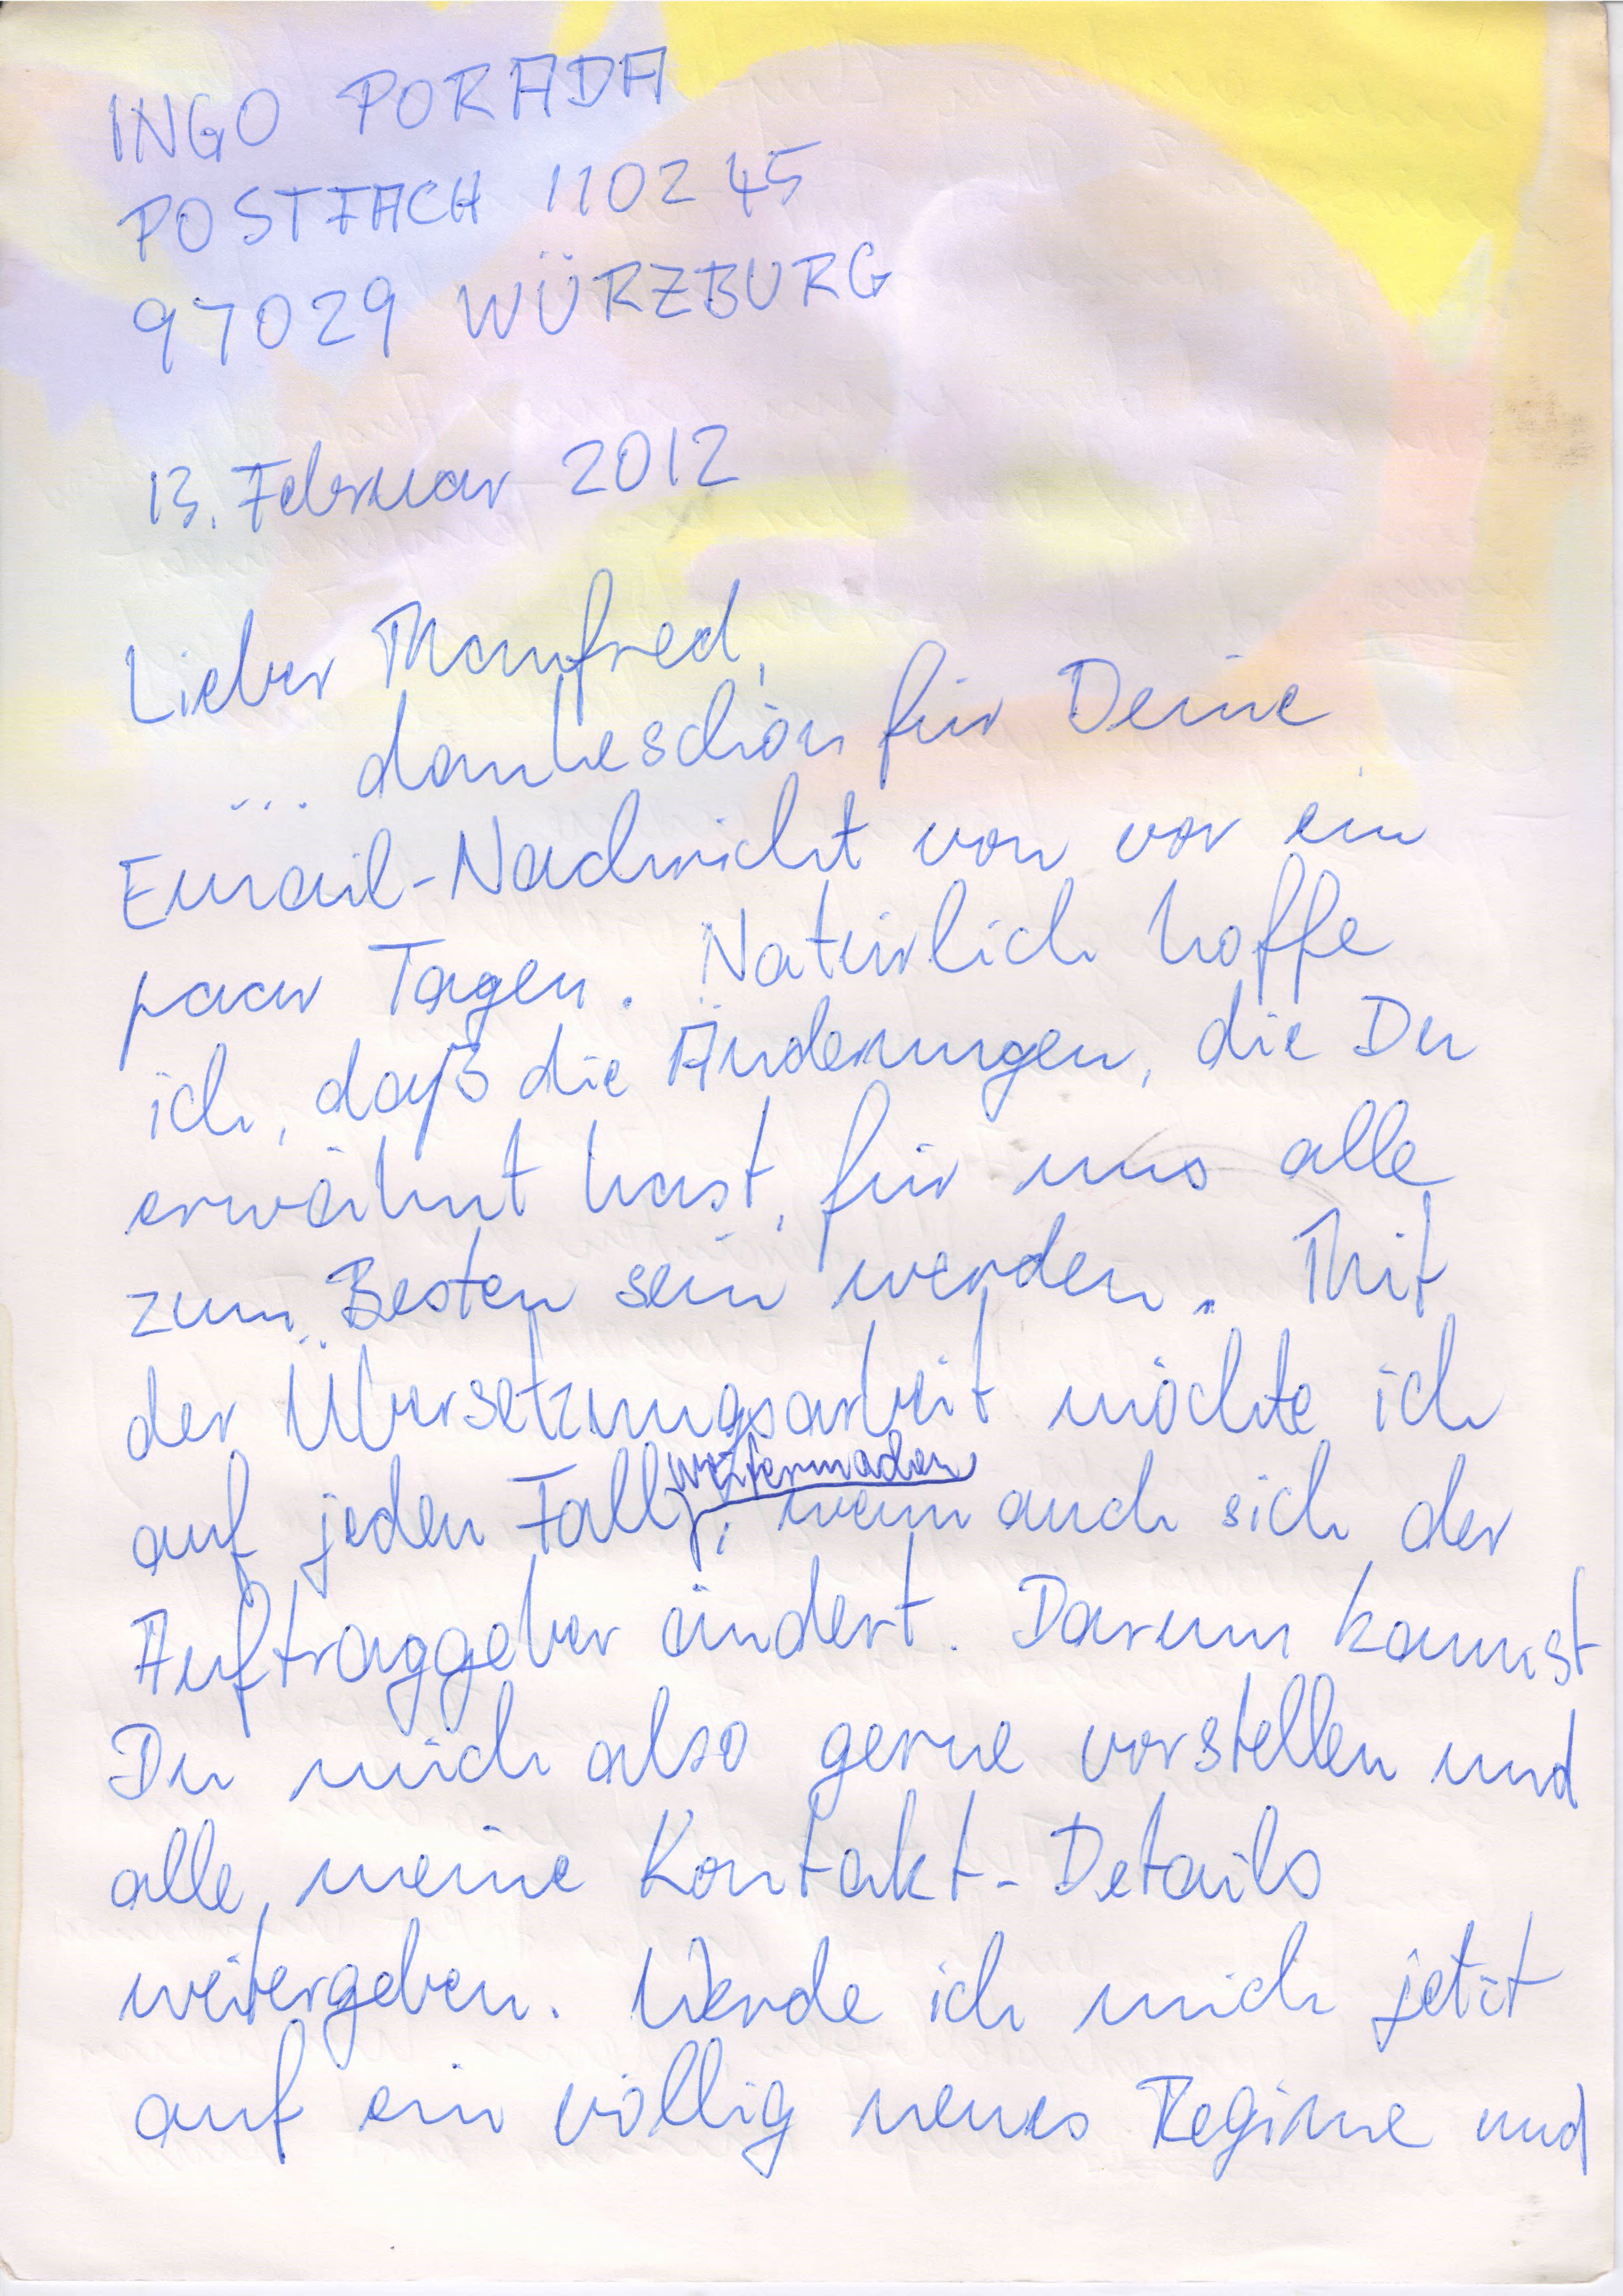 INGO PORADA
POSTFACH 1102 45
97029 WÜRZBURG
13. Februar 2012
Lieber Manfred,
... dankeschön für Deine
Email-Nachricht von vor ein
paar Tagen. Natürlich hoffe
ich, daß die Änderungen, die Du
erwähnt hast, für uns alle
zum Besten sein werden. Mit
der Übersetzungsarbeit möchte ich
weitermachen
auf jeden Fall, wenn auch sich der
Auftraggeber ändert. Darum kannst
Du mich also gerne vorstellen und
alle meine Kontakt-Details
weitergeben. Werde ich mich jetzt
auf ein völlig neues Regime und